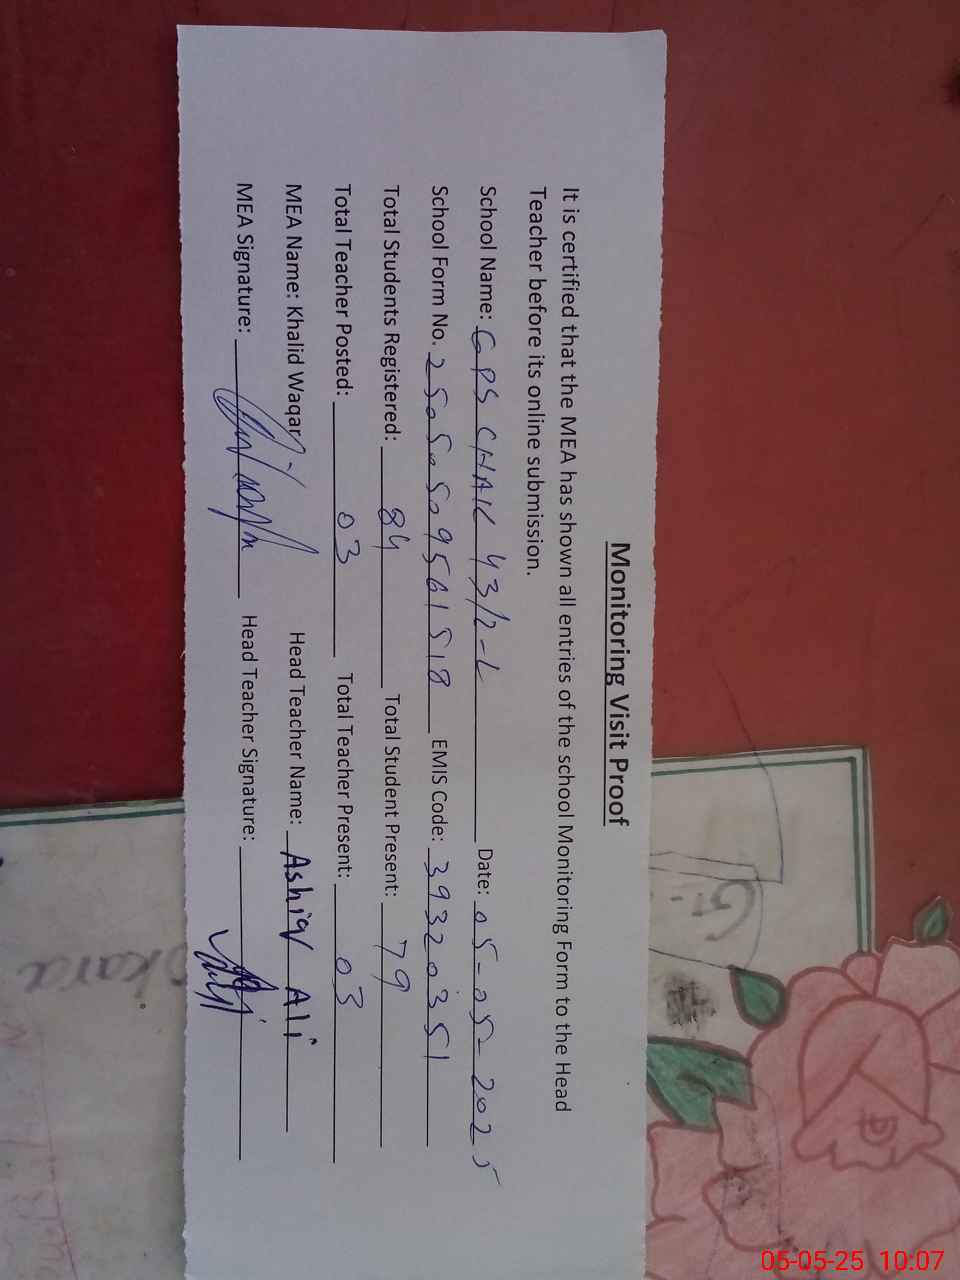 Monitoring Visit Proof
It is certified that the MEA has shown all entries of the school Monitoring Form to the Head
Teacher before its online submission.
School Name: GPS CHAK 43/2-L Date: 05-05-2025
School Form No. 25050509561518 EMIS Code: 39320351
Total Students Registered: 84 Total Student Present: 79
Total Teacher Posted: 03 Total Teacher Present: 03
MEA Name: Khalid Waqar Head Teacher Name: Ashiq Ali
MEA Signature: Head Teacher Signature:
okara
05-05-25 10:07